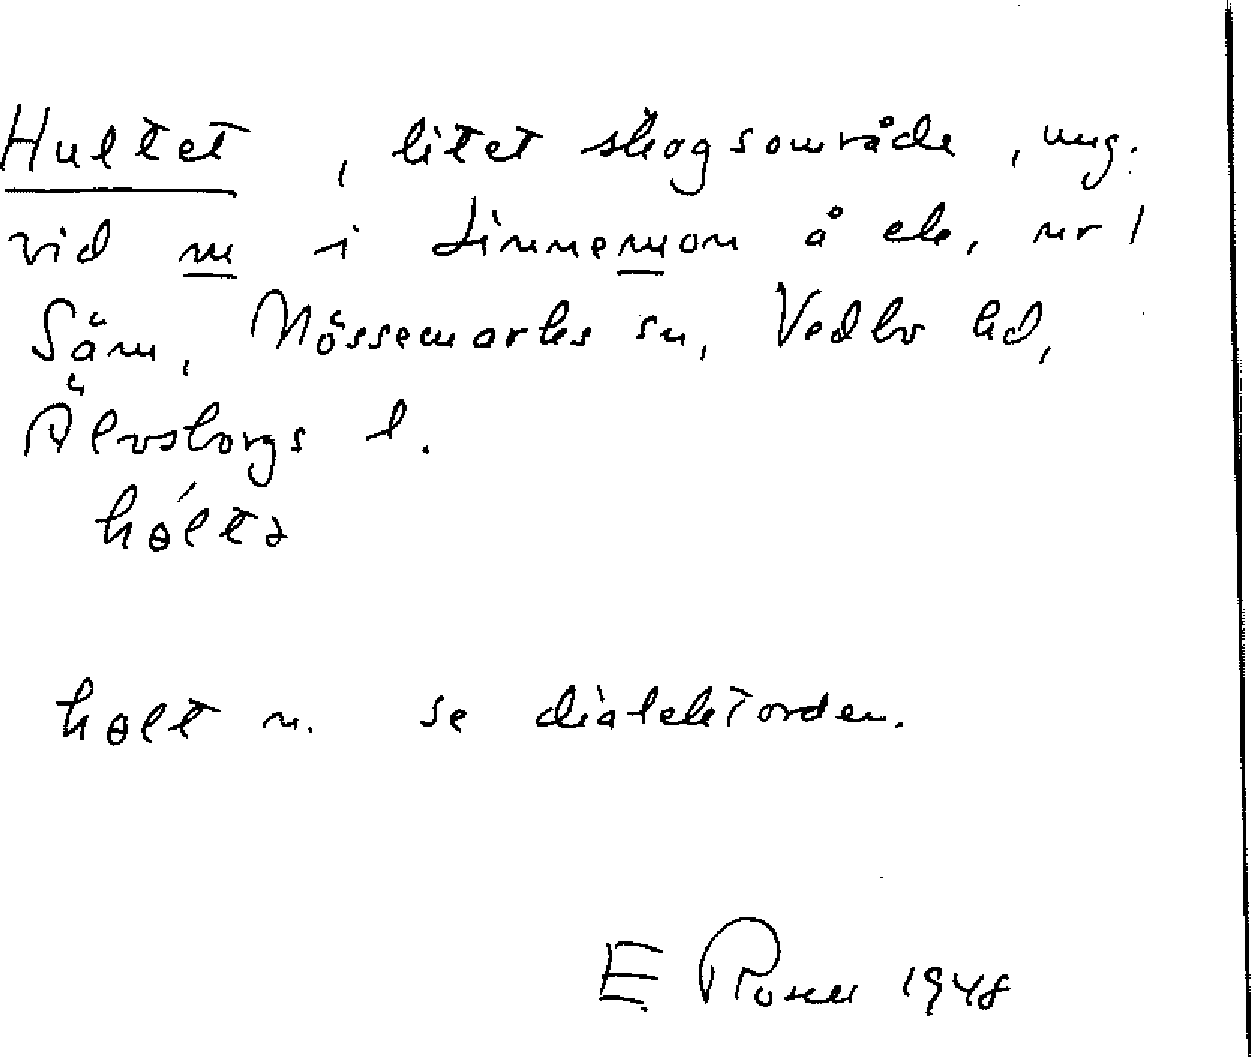 Hultet, litet skogsområde, ung.
vid m i Linnemon å ek. nr 1
Säm, Nössemarks sn, Vedbo hd,
Älvsborgs l.
hɵ́ltə
hɵlt n. se dialektorden.
E Rosen 1948